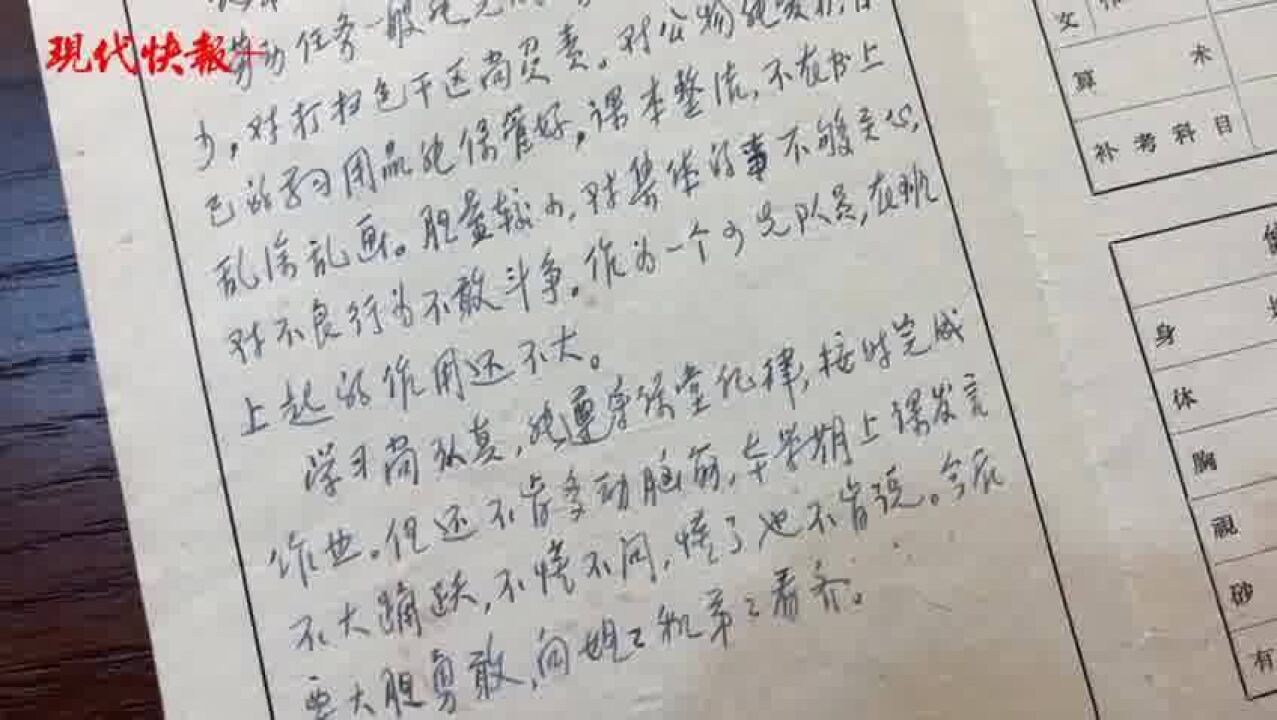 现代快報+
劳动任务一般能完成
少,对打扫包干区尚负责。对公物能爱护,自
己的学习用品能保管好,课本整洁,不在书上
乱涂乱画。胆量较小,对集体的事不够关心,
对不良行为不敢斗争。作为一个少先队员,在班
上起的作用还不大。
学习尚认真,能遵守课堂纪律,按时完成
作业。但还不肯多动脑筋,本学期上课发言
不大踊跃,不懂不问,懂了也不肯说。今后
要大胆勇敢,向姐〻和弟〻看齐。
文
算 术
补考科目
身
体
胸
視
砂
有